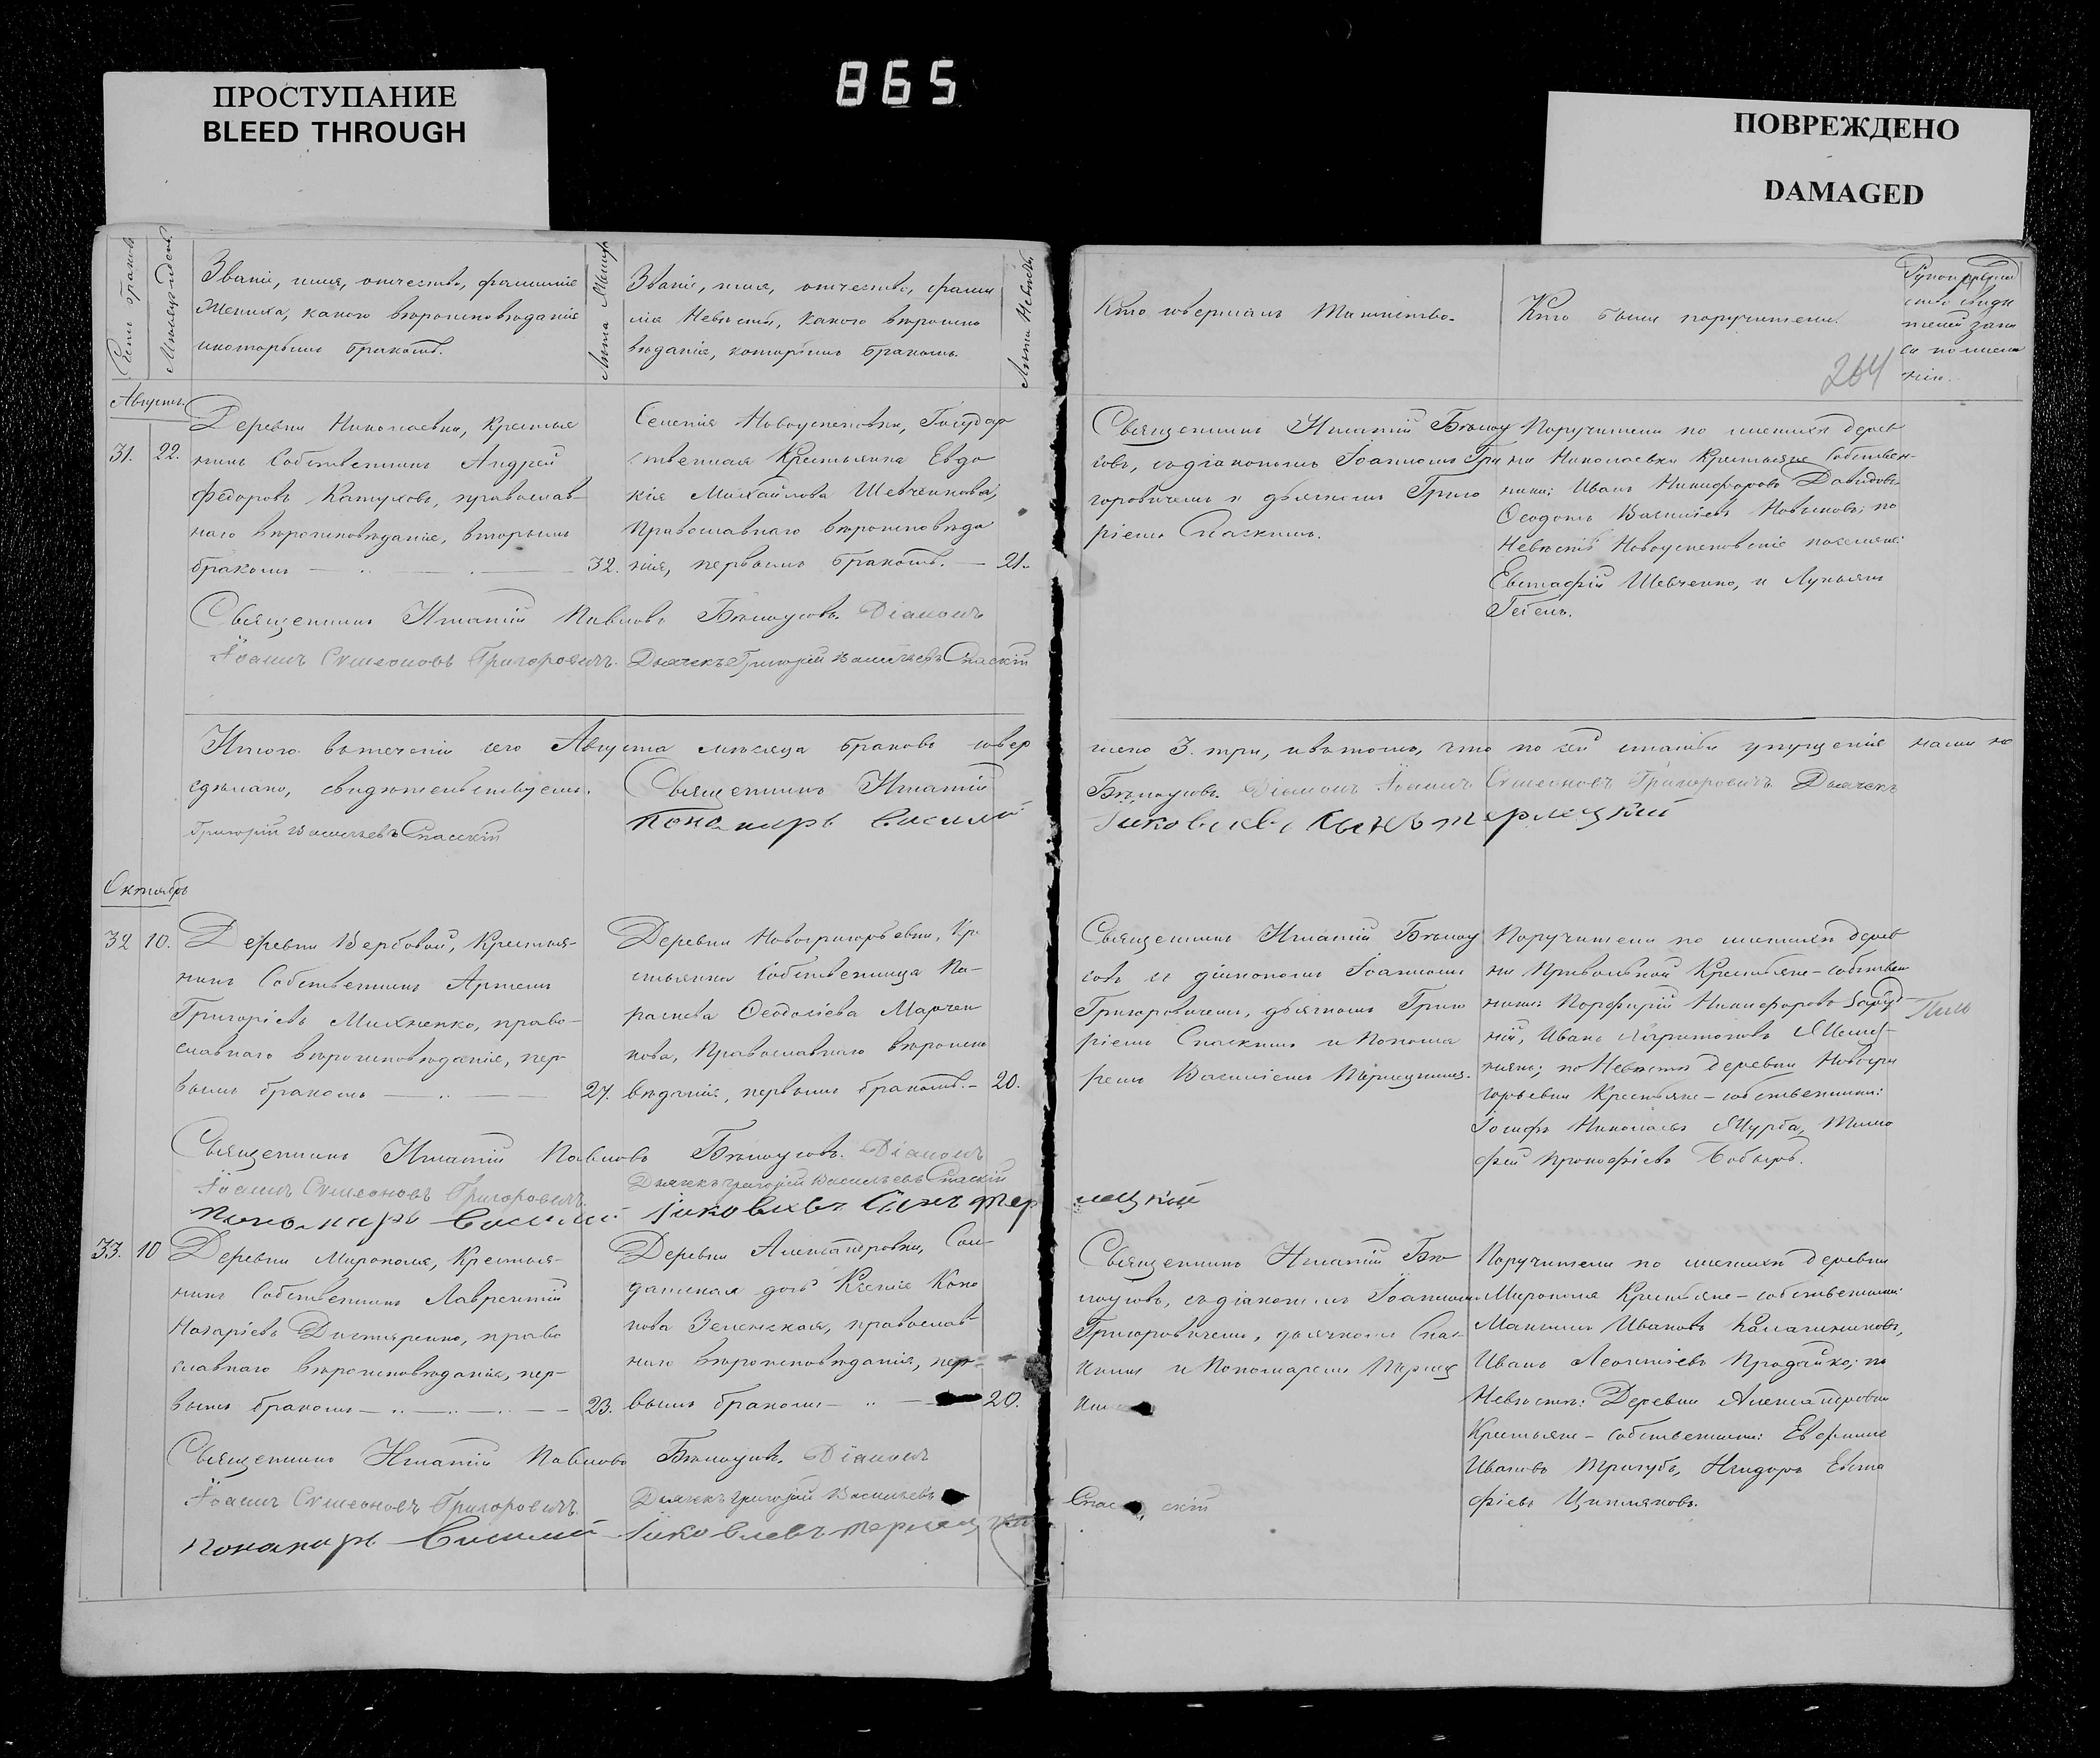 ПРОСТУПАНИЕ
BLEED THROUGH
865
ПОВРЕЖДЕНО
DAMAGED
Счетъ браковъ
Мѣсяцъ и день
Званіе, имя, отчество, фамилія
Жениха, какого вѣроисповѣданія
и которымъ бракомъ.
Лѣта Жениха
Званіе, имя, отчество, фами
лія Невѣсты, какого вѣроиспо
вѣданія, которымъ бракомъ.
Лѣта Невѣсты
Кто совершалъ Таинство.
Кто были поручители.
264
Августъ.
31. 22.
Деревни Николаевки, Крестья
нинъ Собственникъ Андрей
Федоровъ Катуховъ, православ-
наго вѣроисповѣданія, вторымъ
бракомъ 32.
Селенія Новоуспеновки, Государ
ственная Крестьянка Евдо
кія Михайлова Шевченкова,
Православнаго вѣроисповѣда
нія, первымъ бракомъ. — 21.
Священникъ Игнатій Бѣлоу
совъ, съ діакономъ Іоанномъ Гри
горовичемъ и дьячкомъ Григо
ріемъ Спаскимъ.
Поручители по женихѣ дерев
ни Николаевки Крестьяне Собствен-
ники: Иванъ Никифоровъ Давидовъ
Ѳеодотъ Василіевъ Новиковъ; по
Невѣстѣ Новоуспеновскіе поселяне:
Евстафій Шевченко, и Лукьянъ
Священникъ Игнатій Павловъ Бѣлоусовъ. Діаконъ
Іоаннъ Сѵмеоновъ Григоровичъ. Дьячекъ Григорій Васильевъ Спаскій
Итого въ теченіи сего Августа мѣсяца браковъ совер
шено 3. три, и въ томъ, что по сей статьи упущенія нами не
сдѣлано, свидѣтельствуемъ. Священникъ Игнатій
Бѣлоусовъ. Діаконъ Іоаннъ Сѵмеоновъ Григоровичъ Дьячекъ
Григорій Васильевъ Спасскій
Пономарь Василій
Яковлевъ Сынъ Терлецкій
Октябрь
32 10.
Деревни Вербовой, Крестья-
нинъ Собственникъ Артемъ
Григоріевъ Михненко, право-
славнаго вѣроисповѣданія, пер-
вымъ бракомъ 27.
Деревни Новогригорьевки, Кр
стьянка Собственница Па-
раскева Ѳеодосіева Марчен
кова, Православнаго вѣроиспо
вѣданія, первымъ бракомъ. — 20.
Священникъ Игнатій Бѣлоу
совъ съ діакономъ Іоанномъ
Григоровичемъ, дьячкомъ Григо
ріемъ Спаскимъ и Понома
ремъ Василіемъ Терлецкимъ.
Поручители по женихѣ дерев
ни Привольной Крестьяне-собствен
ники: Порфирій Никифоровъ
ній, Иванъ Харитоновъ
по Невѣстѣ деревни Новогри
горьевки Крестьяне-собственники:
Іосифъ Николаевъ Шурба, Тимо
фей Прокофіевъ Бобыръ.
Священникъ Игнатій Павловъ Бѣлоусовъ. Діаконъ
Іоаннъ Сѵмеоновъ Григоровичъ. Дьячекъ Григорій Васильевъ Спаскій
Пономарь Василій Яковлевъ Сынъ Тер
лецкій
33. 10
Деревни Мирополя, Крестья-
нинъ Собственникъ Лаврентій
Назаріевъ Дегтяренко, право
славнаго вѣроисповѣданія, пер-
вымъ бракомъ 23.
Деревни Александровки, Сол-
датская дочь Ксенія Коно
нова Зеленская, православ
наго вѣроисповѣданія, пер-
вымъ бракомъ 20.
Священникъ Игнатій Бѣ
лоусовъ, съ діакономъ Іоанномъ
Григоровичемъ, дьячкомъ Спас-
кимъ и Пономаремъ Терлец
ким
Поручители по женихѣ деревни
Мирополя Крестьяне-собственники:
Максимъ Ивановъ Калашниковъ,
Иванъ Леонтіевъ Продайко; по
Невѣстѣ: Деревни Александровки
Крестьяне-собственники: Евфимій
Ивановъ Тригубъ, Исидоръ Евста
фіевъ Циплаковъ.
Священникъ Игнатій Павловъ Бѣлоусовъ. Діаконъ
Іоаннъ Сѵмеоновъ Григоровичъ. Дьячекъ Григорій Васильевъ
Спас скій
Пономарь Василій Яковлевъ Терлецкій